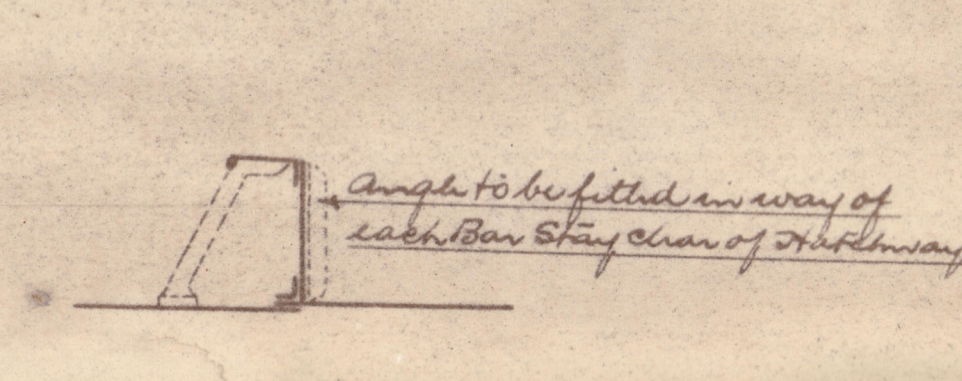 Angle to be fitted in way of
each Bar Stay clear of Hatchway